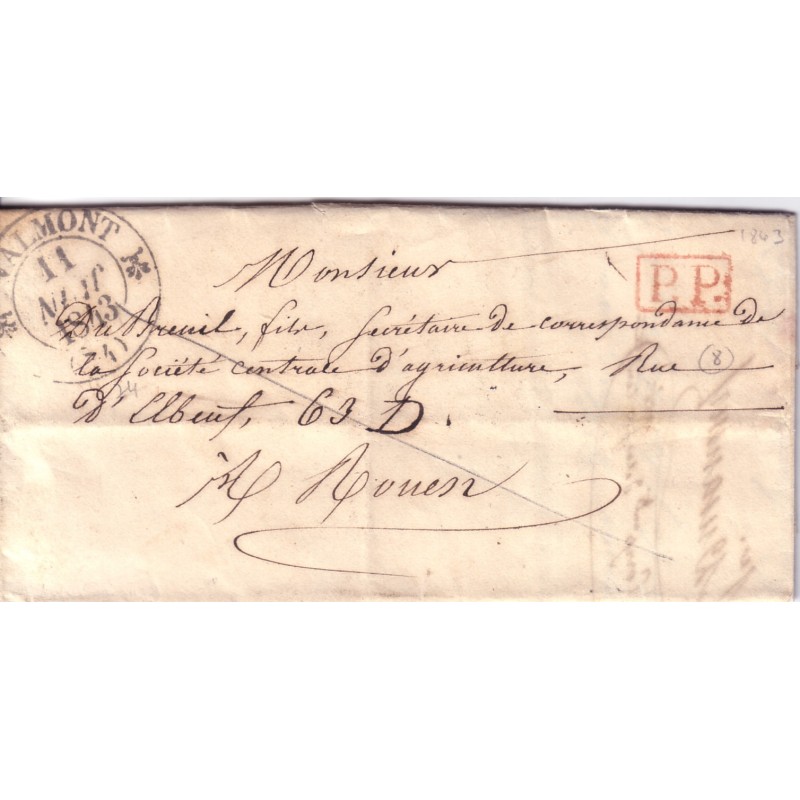 VALMONT
11
1843
(74)
1843
P.P.
Monsieur
Du Breuil, fils, Secrétaire de correspondance de
la Société centrale d'agriculture, Rue (8)
D'Elbeuf, 63 D.
24
À Rouen